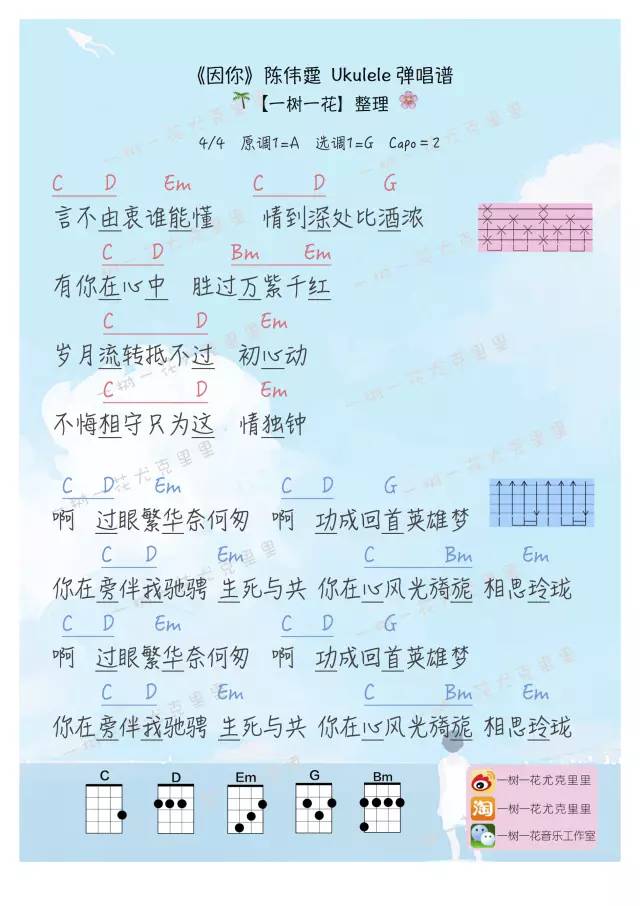 《因你》陈伟霆 Ukulele 弹唱谱
【一树一花】整理
4/4 原调1=A 选调1=G Capo=2
C D Em C D G
言不由衷谁能懂 情到深处比酒浓
C D Bm Em
有你在心中 胜过万紫千红
C D Em
岁月流转抵不过 初心动
C D Em
不悔相守只为这 情独钟
C D Em C D G
啊 过眼繁华奈何匆 啊 功成回首英雄梦
C D Em C Bm Em
你在旁伴我驰骋 生死与共 你在心风光旖旎 相思玲珑
C D Em C D G
啊 过眼繁华奈何匆 啊 功成回首英雄梦
C D Em C Bm Em
你在旁伴我驰骋 生死与共 你在心风光旖旎 相思玲珑
C D Em G Bm
一树一花尤克里里
淘 一树一花尤克里里
一树一花音乐工作室